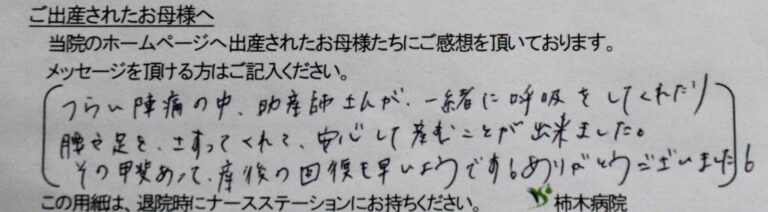 ご出産されたお母様へ
当院のホームページへ出産されたお母様たちにご感想を頂いております。
メッセージを頂ける方はご記入ください。
つらい陣痛の中、助産師さんが、一緒に呼吸をしてくれたり
腰や足を、さすってくれて、安心して産むことが出来ました。
その甲斐あって、産後の回復も早いようです。ありがとうございました。
この用紙は、退院時にナースステーションにお持ちください。 柿木病院